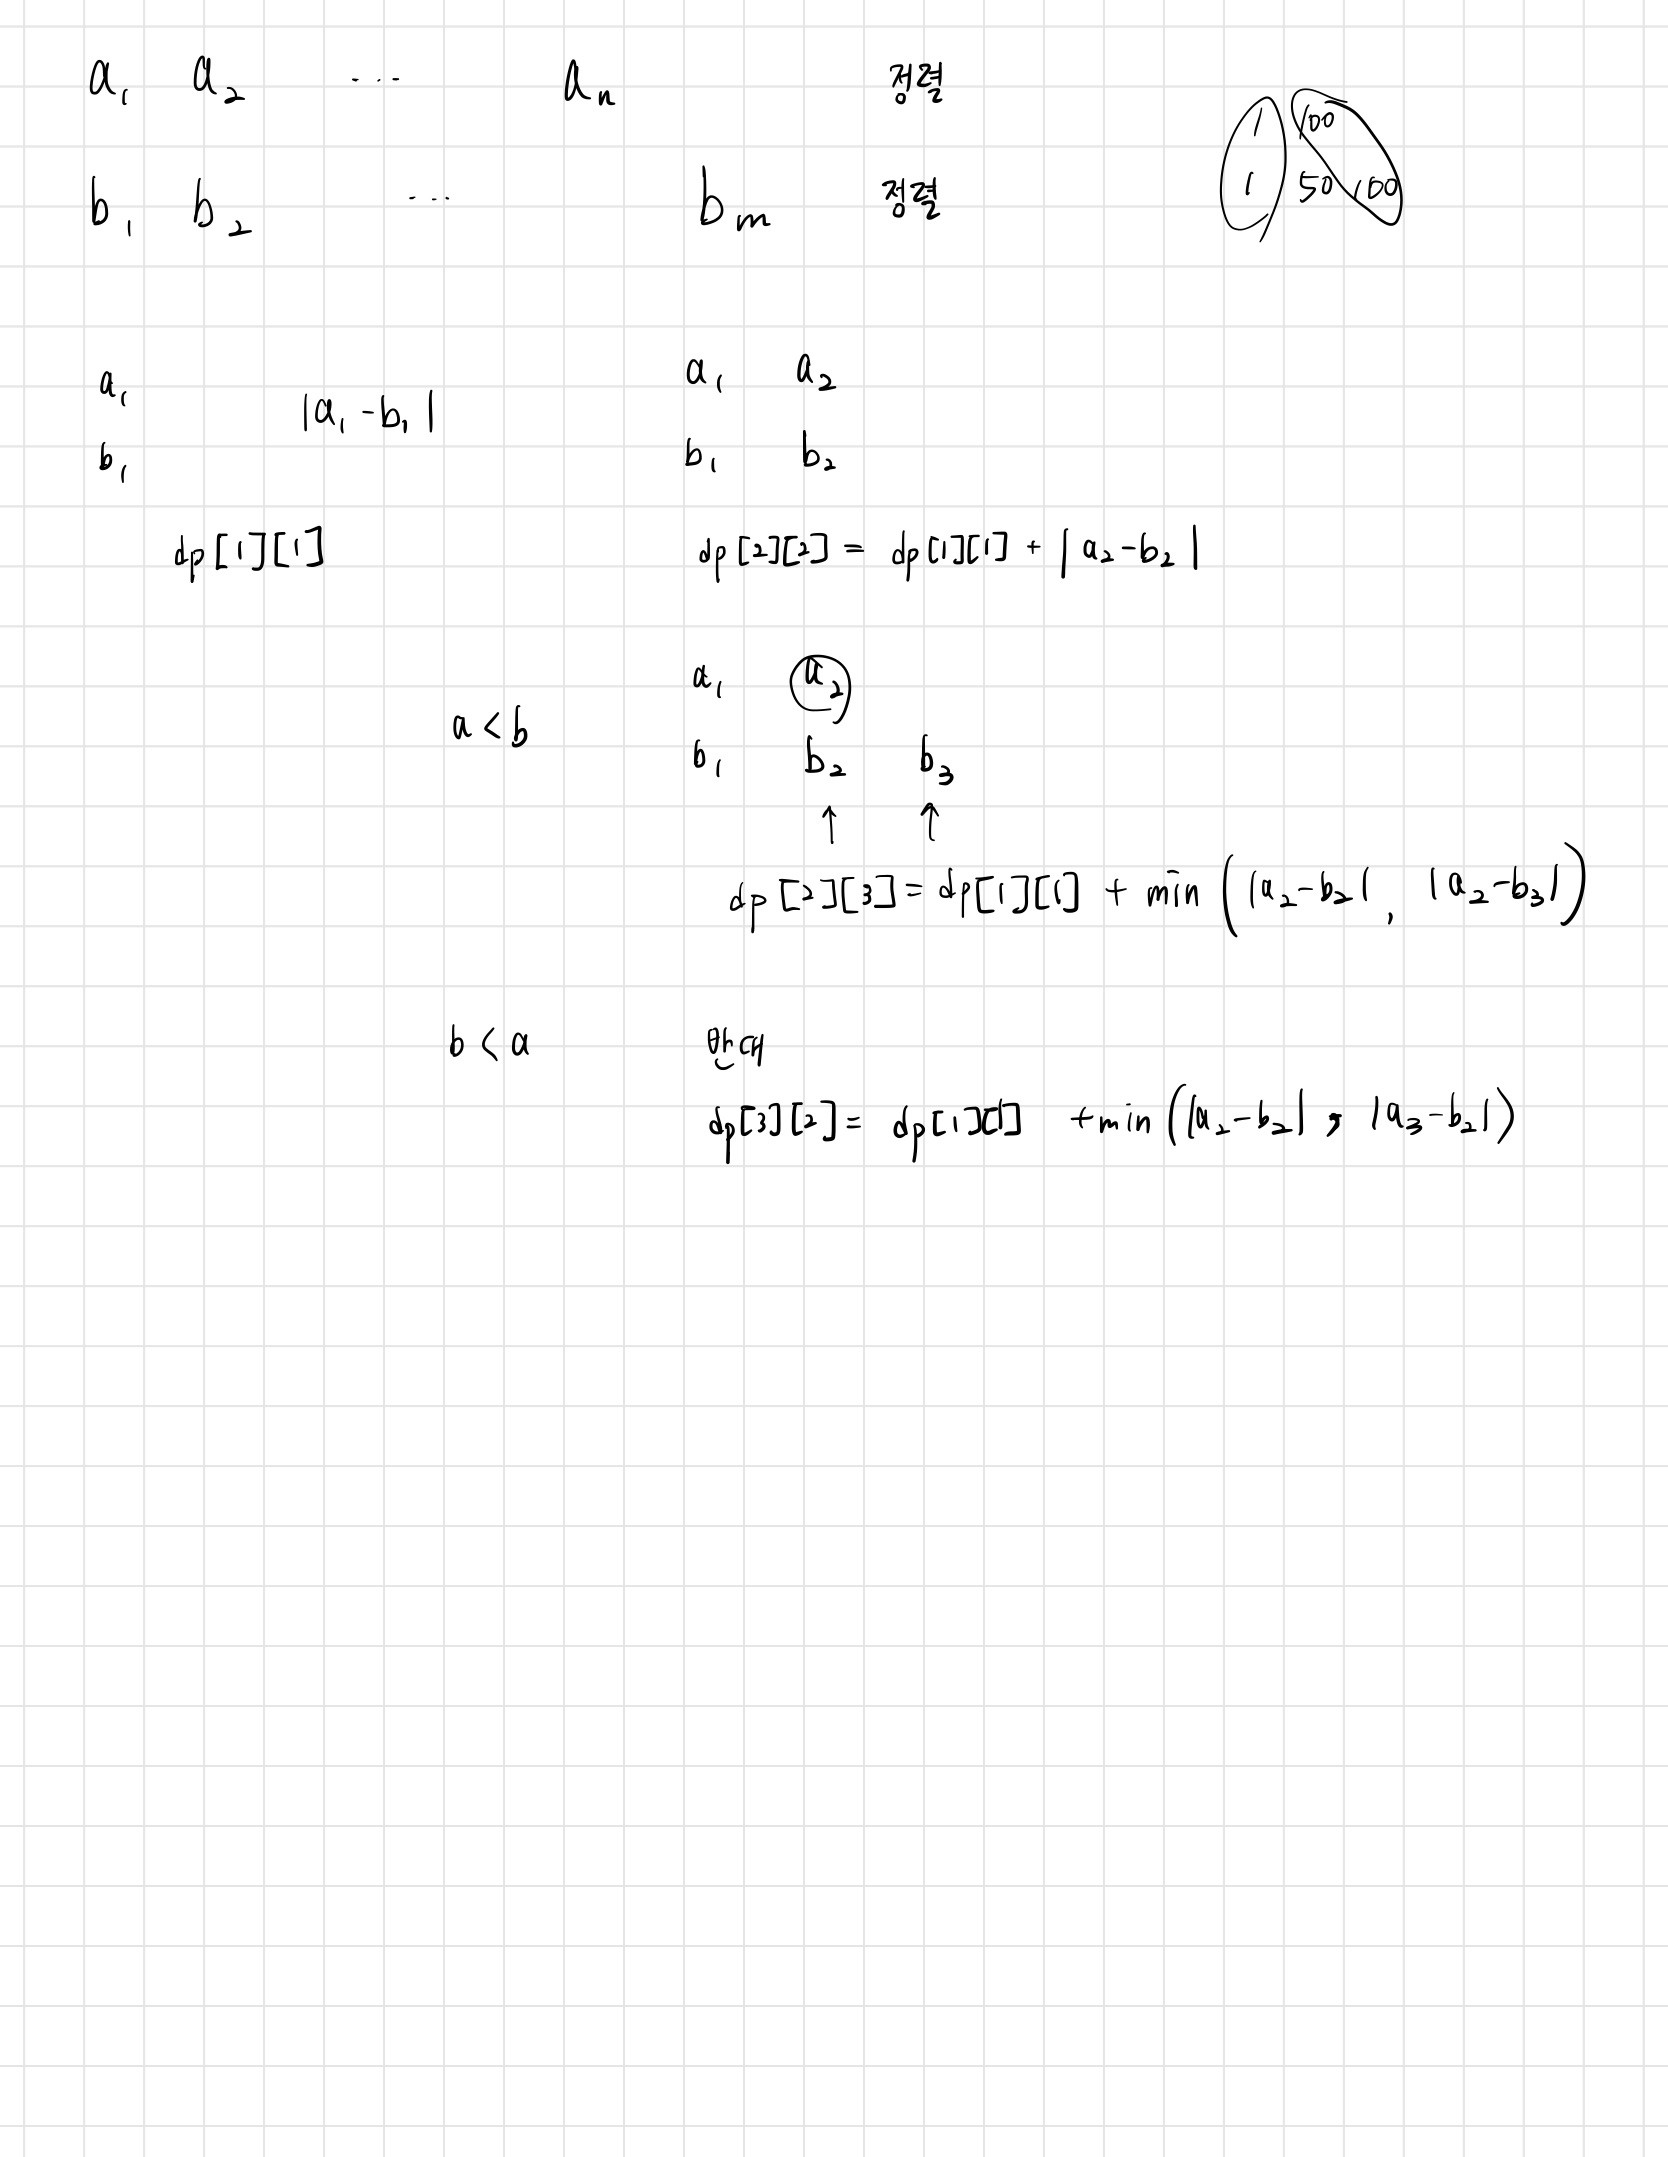 a₁ a₂ ... aₙ 정렬
1 100
b₁ b₂ ... bₘ 정렬
1 50 100
a₁
b₁
|a₁-b₁|
dp[1][1]
a₁ a₂
b₁ b₂
dp[2][2] = dp[1][1] + |a₂-b₂|
a<b
a₁ a₂
b₁ b₂ b₃
↑ ↑
dp[2][3] = dp[1][1] + min(|a₂-b₂|, |a₂-b₃|)
b<a 반대
dp[3][2] = dp[1][1] +min(|a₂-b₂|, |a₃-b₂|)